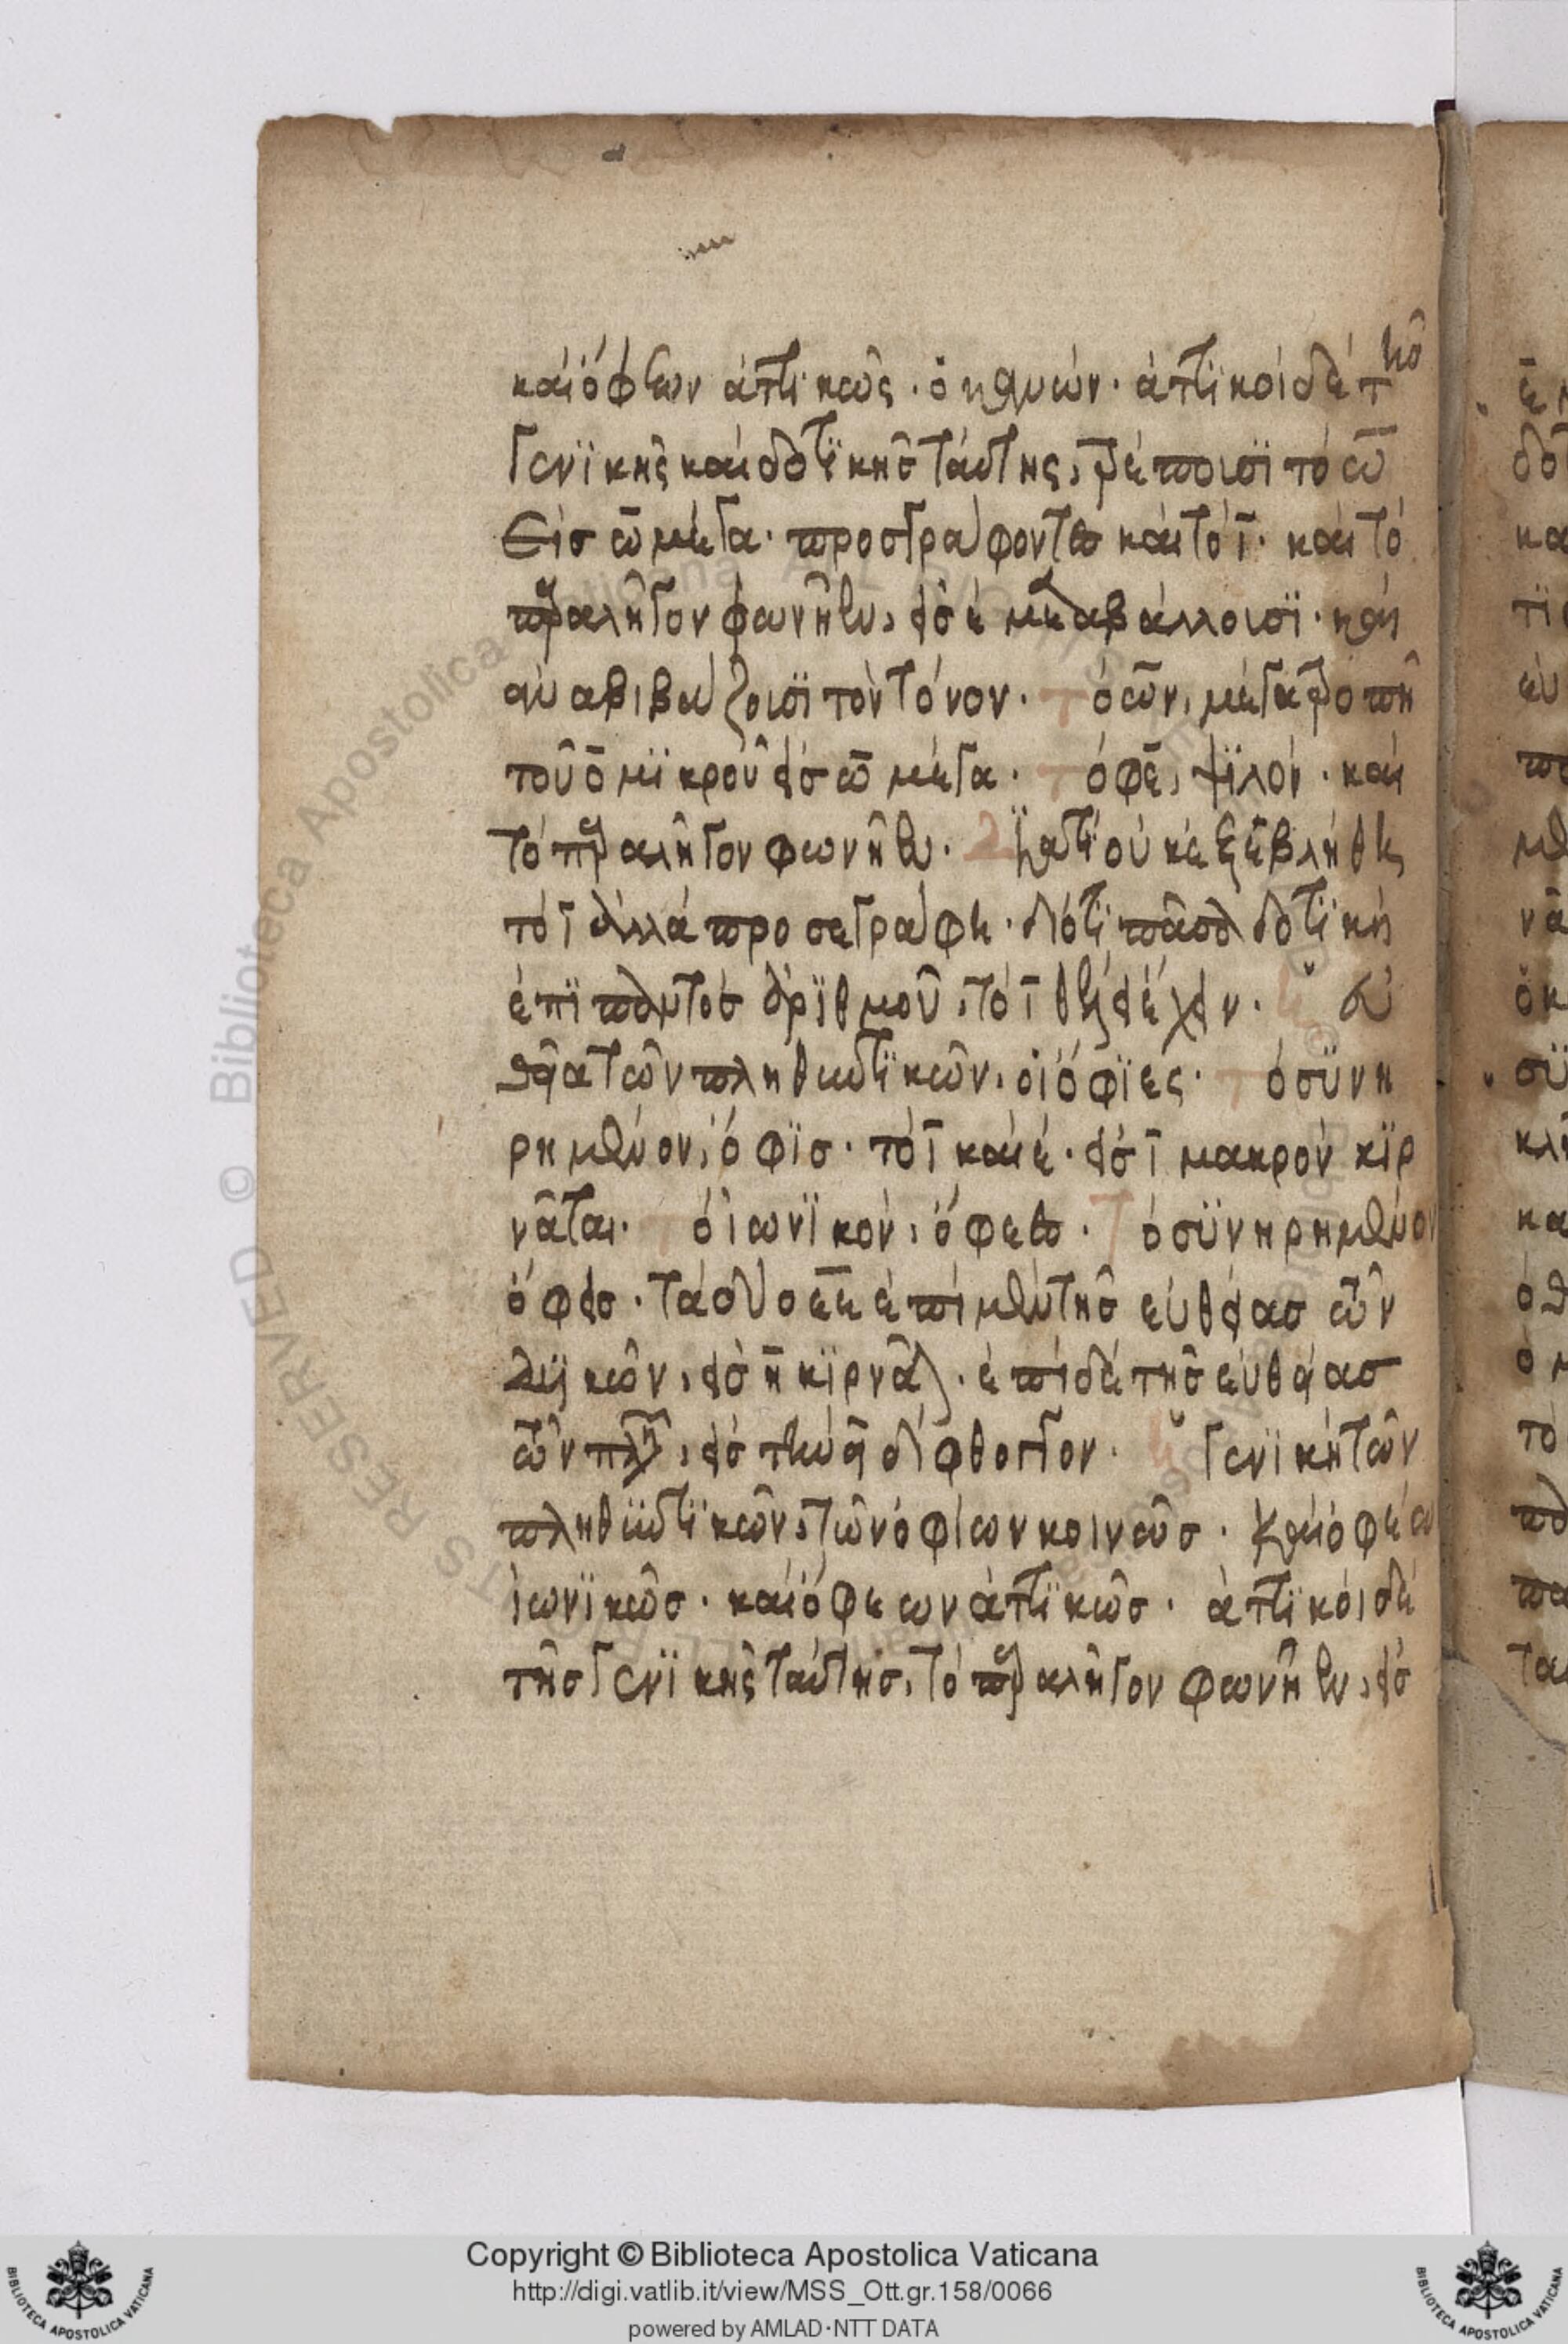 καὶ ὄφεων ἀττικῶς. ὁ κανών. ἀττικοὶ δὲ τῆς
γενικῆς καὶ δοτικῆς ταύτης, τρέπουσι τὸ ο̄
Εἰς ω̄ μέγα. προσγράφονται καὶ τὸ ῑ. καὶ τὸ
παραλῆγον φωνῆεν, εἰς ε̄ μεταβάλλουσι. καὶ
ἀναβιβάζουσι τὸν τόνον. τὸ ων, μέγα τροπῆ
τοῦ ο̄ μικροῦ εἰς ω̄ μέγα. τὸ φε, ψιλόν. καὶ
τὸ παραλῆγον φωνῆεν. διατί οὐκ ἐξεβλήθη
τὸ ῑ ἀλλὰ προσεγράφη. διότι πᾶσα δοτικὴ
ἐπὶ παντὸς ἀριθμοῦ, τὸ ῑ θέλει ἔχειν.
εὐθεῖα τῶν πληθυντικῶν, οἱ ὄφιες. τὸ συνη
ρημένον, ὄφις. τὸ ῑ καὶ ε̄. εἰς ῑ μακρὸν κιρ
νᾶται. τὸ ἰωνικὸν, ὄφεες. τὸ συνηρημένον
ὄφεις. τὰ δύο εε ἐπὶ μὲν τῆς εὐθείας τῶν
δυϊκῶν, εἰς η̄ κιρνᾶται. ἐπὶ δὲ τῆς εὐθείας
τῶν πλη, εἰς τὴν ει δίφθογγον. γενικὴ τῶν
πληθυντικῶν, τῶν ὀφίων κοινῶς. καὶ ὀφέω
ἰωνικῶς. καὶ ὄφεων ἀττικῶς. ἀττικοὶ δὲ
τῆς γενικῆς ταύτης, τὸ παραλῆγον φωνῆεν, εἰς
Copyright © Biblioteca Apostolica Vaticana
http://digi.vatlib.it/view/MSS_Ott.gr.158/0066
powered by AMLAD·NTT DATA